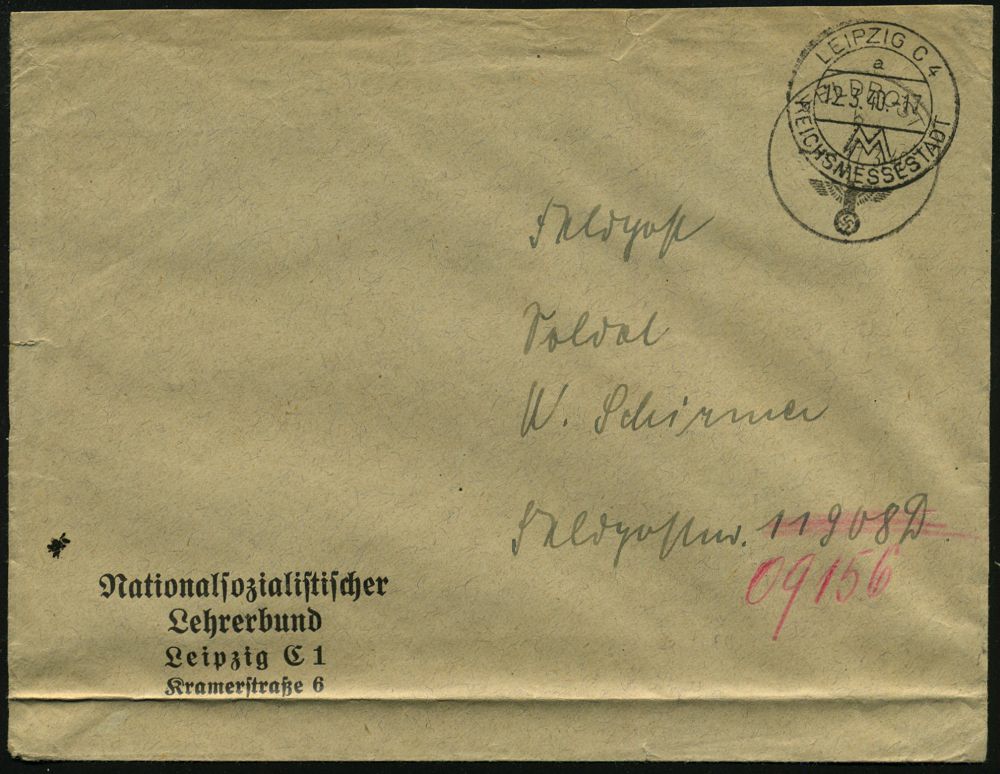 LEIPZIG C 4
a
12.3.40.-17
REICHSMESSESTADT
Feldpost
Soldat
W. Schirmer
Feldpostnr. 11908D
09156
Nationalsozialistischer
Lehrerbund
Leipzig C 1
Kramerstraße 6